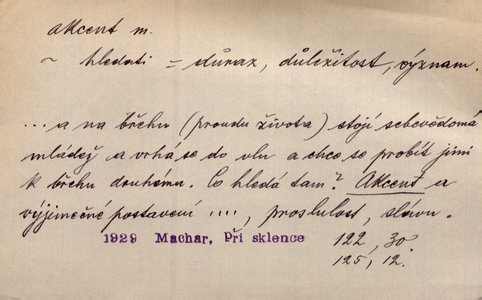 akcent m.
~ hledati = důraz, důležitost, význam.
...a na břehu (proudu života) stojí sebevědomá
mládež a vrhá se do vln a chce se probít jimi
k břehu druhému. Co hledá tam? Akcent a
výjimečné postavení ...., proslulost, slávu.
1929 Machar, Při sklence 122, 30.
125, 12.